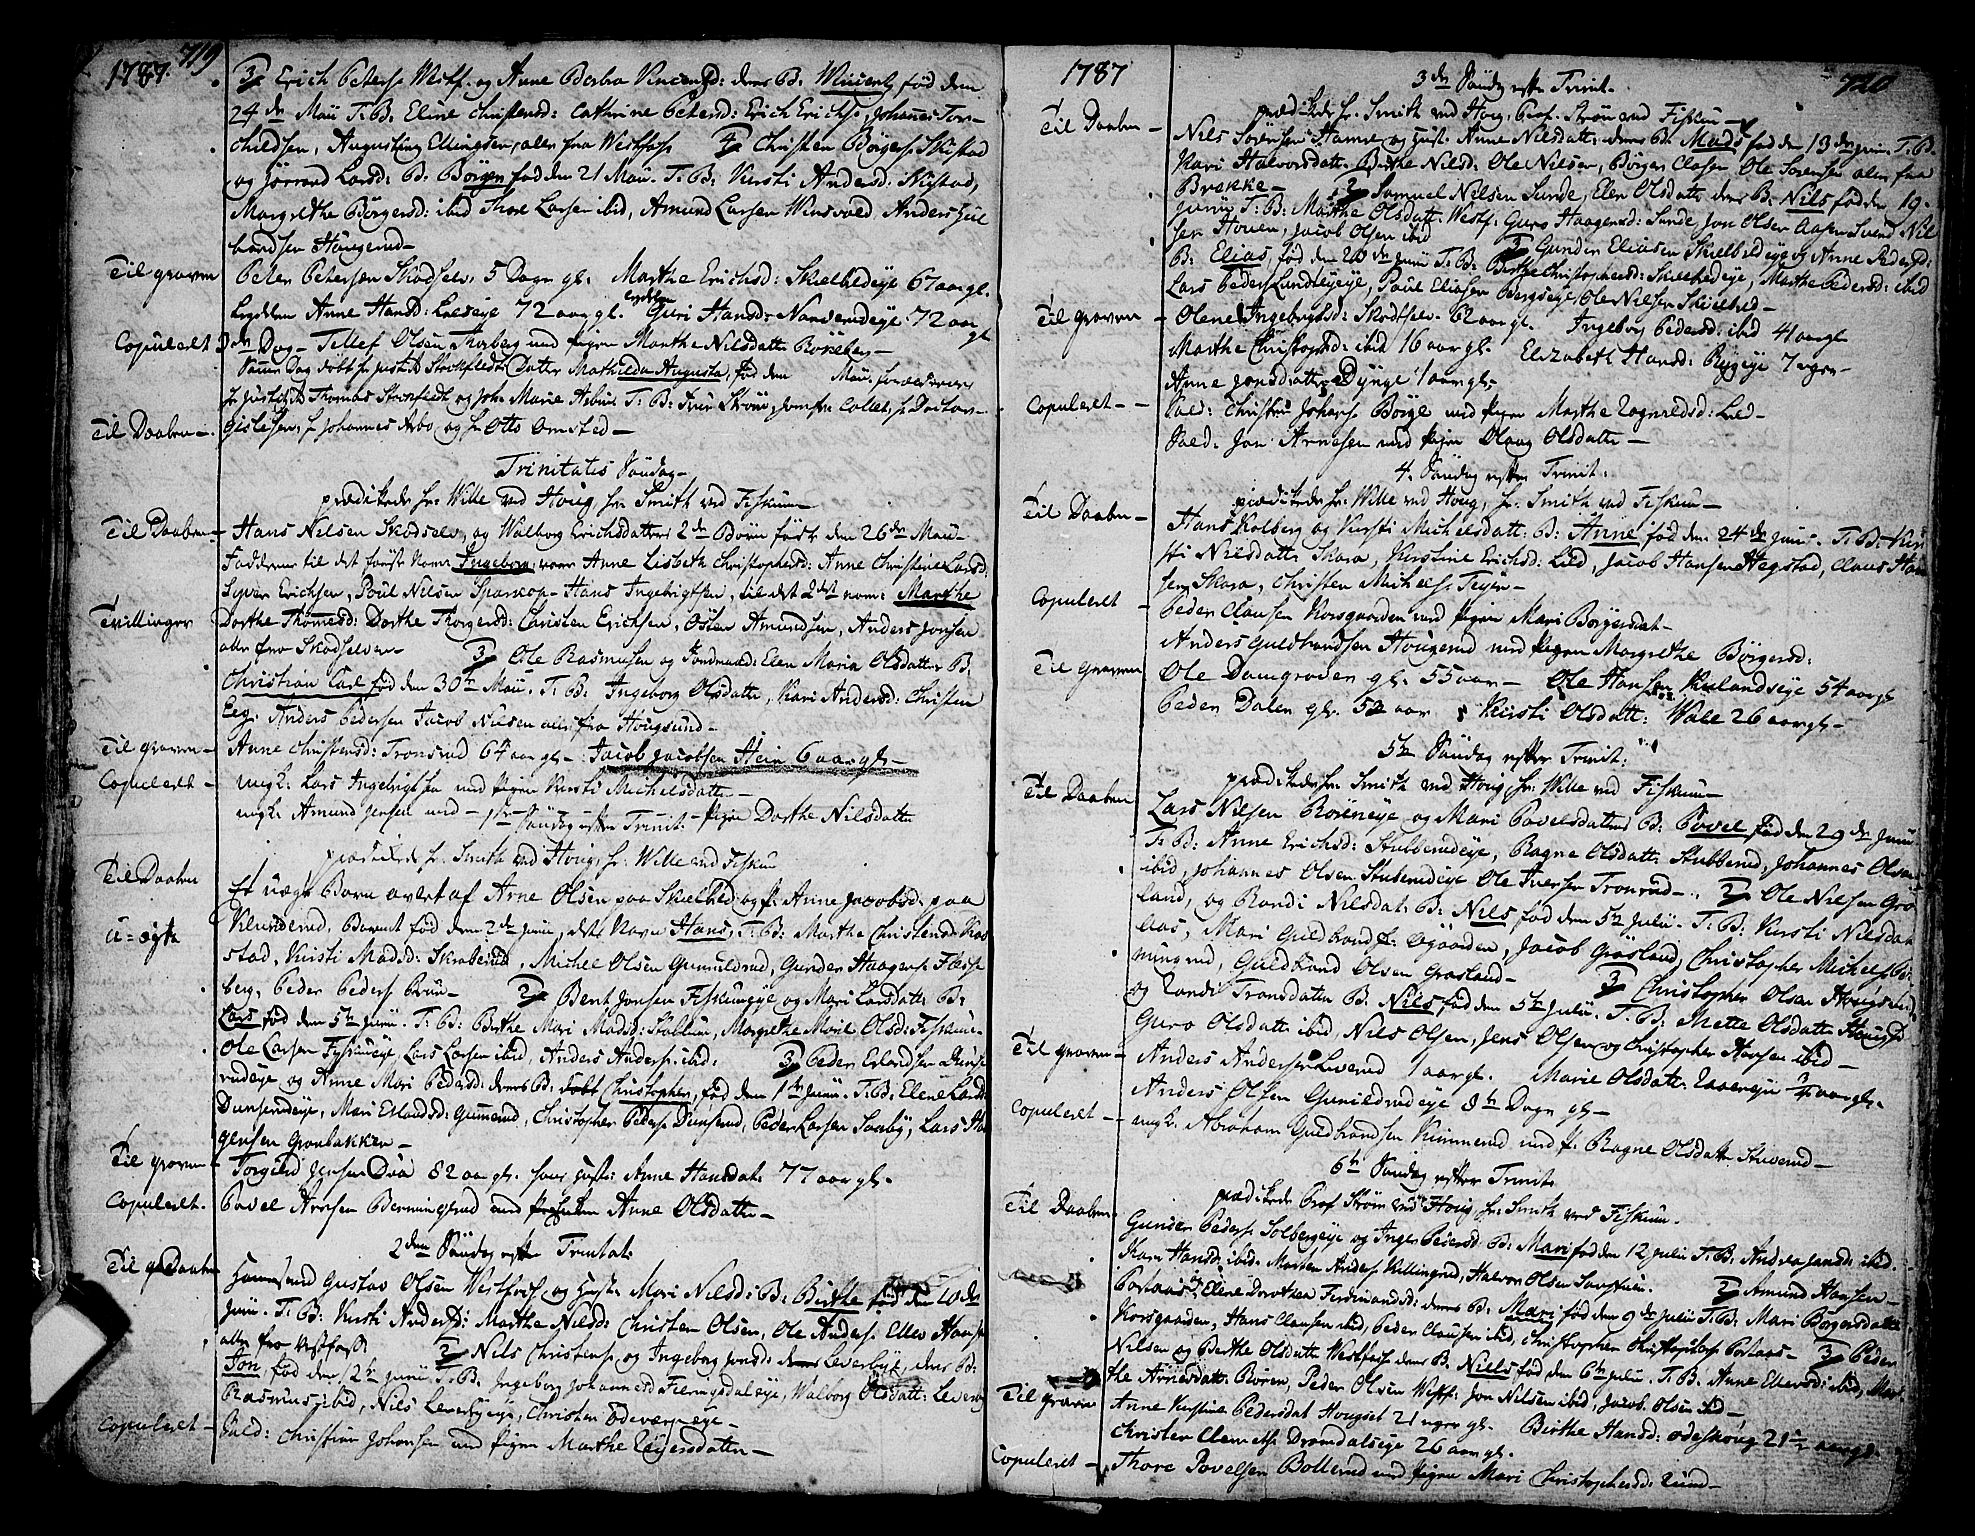 1787. 719
3/ Erich Peters: Westf: og Anne Barbra Vincentsd: deres B: Vincentz fød den
24de Maü T. B: Eline Christensd: Cathrine Petersd: Erich Erichs:, Johanes Tor-
childsen, Augustinus Ellingsen, alle fra Westfos 4/ Christen Børgers: Skistad
og Jørrand Larsd: B: Børger fød den 21 Maü. T: B: Kirsti Andersd: Skistad,
Margrethe Børgersd: ibid Thore Larsen ibid, Amund Larsen Winsvold, Anders Gul
brandsen Haugerud-
Til graven Peter Petersen Skodselv, 5 Dage gl. Marthe Erichsd: Skielbredeye 67 aar gl.
Anne Hansd: Loeseye 72 aar gl. Guri Hansd: 72 aar gl
Copuleret Tellef Olsen Thorberg med pigen Marthe Nilsdatter Børkeberg-
Samme Dag døbt hr Justits Stockfledts Datter Mathilda Augusta, fød den Maü, forældrene
hr Justits Thomas Stockfledt og Marie Arbin T: B: Frue Strøm, Jomfr: Collet, hr Doctor
Til Daaben- Gislesen, hr Johannes Arbo og hr Otto Omsted-
Trinitatis Søndag-
prædikede hr: Wille ved Houg hr: Smith ved Fiskum-
Til Daaben- Hans Nilsen Skodselv, og Walborg Erichsdatters 2de Børn født den 26de Maü-
Fadderne til det første Navn Ingeborg, vare Anne Lisbeth Christophersd: Anne Christine Larsd:
Syver Erichsen, Poül Nilsen Sparcop- Hans Ingebrigtsen, til det 2det navn: Marthe
Tvillinger Dorthe Thomesd: Dorthe Thorgersd: Christen Erichsen, Østen Amundsen, Anders Jonsen
alle fra Skodselven- 3/ Ole Rasmusen og Elen Maria Olsdatter B:
Christian Carl fød den 30te Maü. T. B: Ingeborg Olsdatter, Kari Andersd: Christen
Eeg. Anders Pedersen Jacob Nilsen alle fra Hougsund-
Til graven- Anne Christensd: Tronsrud 64 aar gl- Jacob Jacobsen Hein 6 aar gl-
Copuleret- ungk: Lars Ingebrigtsen med pigen Kirsti Michelsdatter-
ungk: Amund Jensen med pigen Dorthe Nilsdatter
1te Søndag efter Trinit:
prædikede hr. Smith ved Houg, hr: Wille ved Fiskum
Til Daaben Et uægte Barn avlet af Arne Olsen paa Skielbred og p: Anne Jacobsd: paa
u=ægte Klunderud, Barnet fød den 2de Junii, dets Navn Hans, T: B: Marthe Christensd: Kop
stad, Kirsti Madsd: Skraberud, Michel Olsen Gunnildrud, Gunder Haagens: Flesse
berg, Peder Peders: Bruun- 2/ Bent Jonsen Fiskumeye og Mari Larsdatter B:
Lars fød den 5te Junii. T: B: Birthe Mari Madsd: Stablum, Margrethe Marie Olsd: Fiskum.
Ole Larsen Fiskumeye, Lars Larsen ibid, Anders Anders: ibid: 3/ Peder Erlandsen Dunse
rudeye og Anne Mari Pedersd: deres B: Christopher, fød den 1te Junii. T: B: Elene Larsd:
Dunserudeye, Mari Erlandsd: Gunnerud, Christopher Peders: Dunserud, Peder Larsen Saasby, Lars Hal
gensen Grønbakken-
Til graven- Torgild Jensen Daa 82 aar gl. hans hustr: Anne Hansdat: 77 aar gl-
Copuleret. Povel Arnsen Bermingrud med Anne Olsdatter-
2den Søndag efter Trinitat:
Til Daaben Gustav Olsen Westfos og Hust: Mari Nilsd: B: Birthe fød den 10de
Junii. T: B: Kirsti Andersd: Marthe Nilsd: Christen Olsen, Ole Anders: Ellev Hansen
alle fra Westfos 2/ Nils Christens: og Ingeborg Jonsd: Leverbye, deres B:
Jon fød den 12te Junii T: B: Ingeborg Johannesd: Walborg Olsdatter: Leverbye
Rasmus ibid, Nils Leverbyeye, Christen
Copuleret- Sold: Christian Johansen med pigen Marthe Zigersdatter-

1787 720
3de Søndag efter Trinit.
prædikede hr. Smith ved Houg, Prof. Strøm ved Fiskum-
Til Daaben- Nils Sørensen Hamre og Hust. Anne Nilsdatter, deres B: Mads fød den 13de Junii. T. B:
Kari Halvorsdatt: Birthe Nilsd: Ole Nilsen, Børger Closen Ole Sørensen alle fra
Brække- 2/ Samuel Nilsen Sunde, Elen Olsdatter deres B: Nils fød den 19.
Junii T. B: Marthe Olsdatt: Westf: Guro Haagensd: Sunde, Jon Olsen Aasen Svend Nil
sen Houen, Jacob Olsen ibid 3/ Gunder Eliasen Skielbredeye og Anne Pedersd:
B: Elias, fød den 20de Junii T: B: Birthe Christophersd: Skielbredeye, Marthe Pedersd: ibid
Lars Peders: Lundteyeye, Paul Eliasen Bergseye, Ole Nilsen Skielbred-
Til graven- Olene Ingebrigtsd: Skodselv. 62 aar gl. Ingeborg Pedersd: ibid 41 aar gl
Marthe Christophersd: ibid 16 aar gl. Elizabeth Hansd: Bygeye 7 uger-
Anne Jonsdatter Dynge 1 aar gl-
Copuleret-- Sold: Christen Johans: Børge med pigen Marthe Lied-
Sold. Jon Arnesen med pigen Olaug Olsdatter-
4. Søndag efter Trinit:
prædikede hr: Wille ved Houg, hr. Smith ved Fiskum-
Til Daaben- Hans Kolberg og Kirsti Michelsdatt: B: Anne fød den 24de Junii. T. B: Kir
sti Nilsdatt: Skara, Kirstine Erichsd: Lied, Jacob Hansen Hagstad, Claus Han
sen Skara, Christen Michels: Teyen-
Copuleret- Peder Clausen Korsgaarden med pigen Mari Børgersdat-
Anders Guldbrandsen Hougerud med pigen Margrethe Børgersd:
Til graven Ole Damgraven gl. 55 aar- Ole Hans: Kielandseye 54 aar gl
Peder Dalen gl. 52 aar Kirsti Olsdatt: Wale 26 aar gl-
5te Søndag efter Trinit:
prædikede hr. Smith ved Houg, hr: Wille ved Fiskum-
Til Daaben Lars Nilsen Børeneye og Mari Povelsdatters B: Povel fød den 29de Junii
T. B: Anne Erichsd: Stubberudeye, Ragne Olsdatt: Stubberud, Johannes Olsen
ibid, Johannes Olsen Stuberudeye Ole Iversen Tronrud- 2/ Ole Nilsen Grøs
land, og Randi Nilsdat: B: Nils fød den 5te Julii. T. B: Kirsti Nilsdat
aas, Mari Guldbrands: Øgaarden, Jacob Grøsland, Christopher Michels: Ber
mingrud, Guldbrand Olsen Grøsland- 3/ Christopher Olsen Hougsund
og Randi Tronsdatter B: Nils, fød den 5te Julii. T. B: Mette Olsdatt: Hougsd
Guro Olsdatt: ibid, Nils Olsen, Jens Olsen og Christopher Hansen ibid-
Til graven- Anders Andersen Liverud 1 aar gl. Marie Olsdatt: aar gl.
Anders Olsen Gunildrudeye 8te Dage gl-
Copuleret- ungk. Abraham Guldbrandsen Kimmerud med p. Ragne Olsdatter Stuverud-
6te Søndag efter Trinit:
prædikede Prof Strøm ved Houg, hr. Smith ved Fiskum.
Til Daaben. Gunder Peders: Solbergeye og Inger Peiersd: B: Mari fød den 12 Julii T. B: Andrea Jansd: ibid.
Kari Hansd: ibid. Morten Anders: Killingrud, Halvor Olsen 2/ Amund Hansen-
Elene Dorothea Ferdinandsd: deres B: Mari fød den 9de Julii T. B: Mari Børgersdatter
Korsgaarden, Hans Clausen ibid, Peder Clausen ibid, Christopher Christophers: 3/ Peder
Nilsen og Berthe Olsdatt: Westfos: deres B. Nils fød den 6te Julii. T. B: Anne Ellevsd: ibid, Mar
the Arnesdatt: Børen, Peder Olsen Westf: Jon Nilsen ibid, Jacob Olsen ibid-
Til graven Anne Kirstine Pedersdat Hougset 21 uger gl. Birthe Hansd: 21 1/2 aar gl.
Christen Clemetse Dramdalseye 26 aar gl.
Copuleret- Thore Povelsen Bollerud med pigen Mari Christophersd: